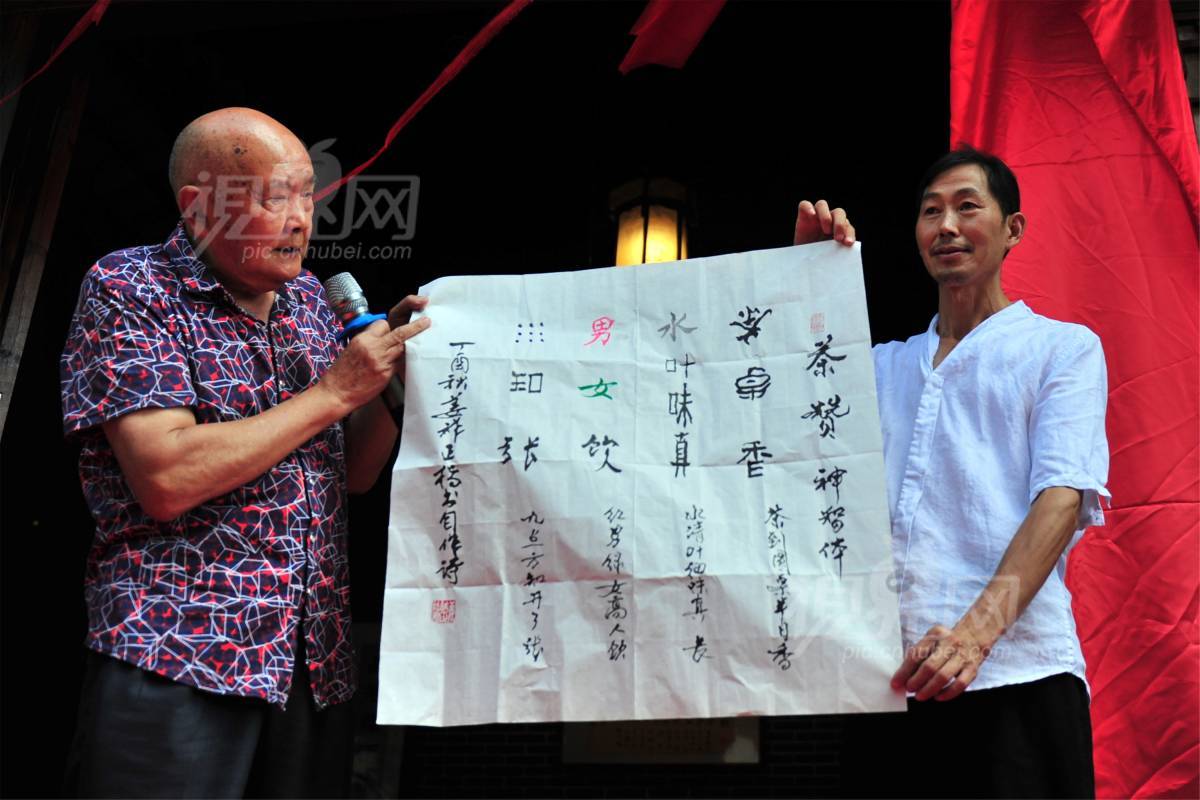 茶赞 神智体
香
茶到园 半日香
水叶味真
水清叶细味真长
男女饮
红男绿女高人饮
知
长
九点方知开了张
丁酉秋姜祚正稿书自作诗
视界网
pic.cnhubei.com
视界网
pic.cnhubei.com